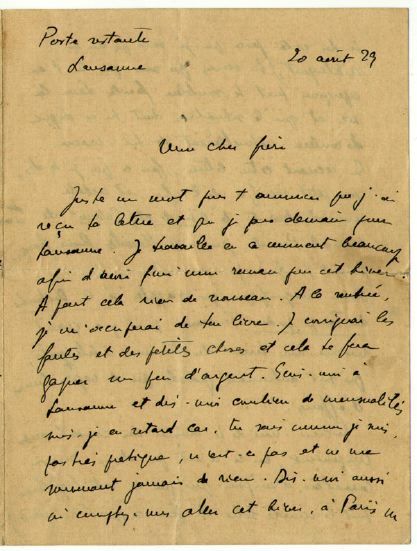 Poste restante
Lausanne
20 août 29
Mon cher frère
Juste un mot pour t'annoncer que j'ai
reçu ta lettre et que je pars demain pour
Lausanne. Je travaille en ce moment beaucoup
afin d'avoir fini mon roman pour cet hiver.
A part cela rien de nouveau. A la rentrée,
je m'occuperai de ton livre. Je corrigerai les
fautes et des petites choses et cela te fera
gagner un peu d'argent. Ecris-moi à
Lausanne et dis-moi combien de mensualités
suis-je en retard car, tu sais comme je suis,
pas très pratique, n'est-ce pas et ne me
souvenant jamais de rien. Dis-moi aussi
où comptez-vous aller cet hiver, à Paris ou